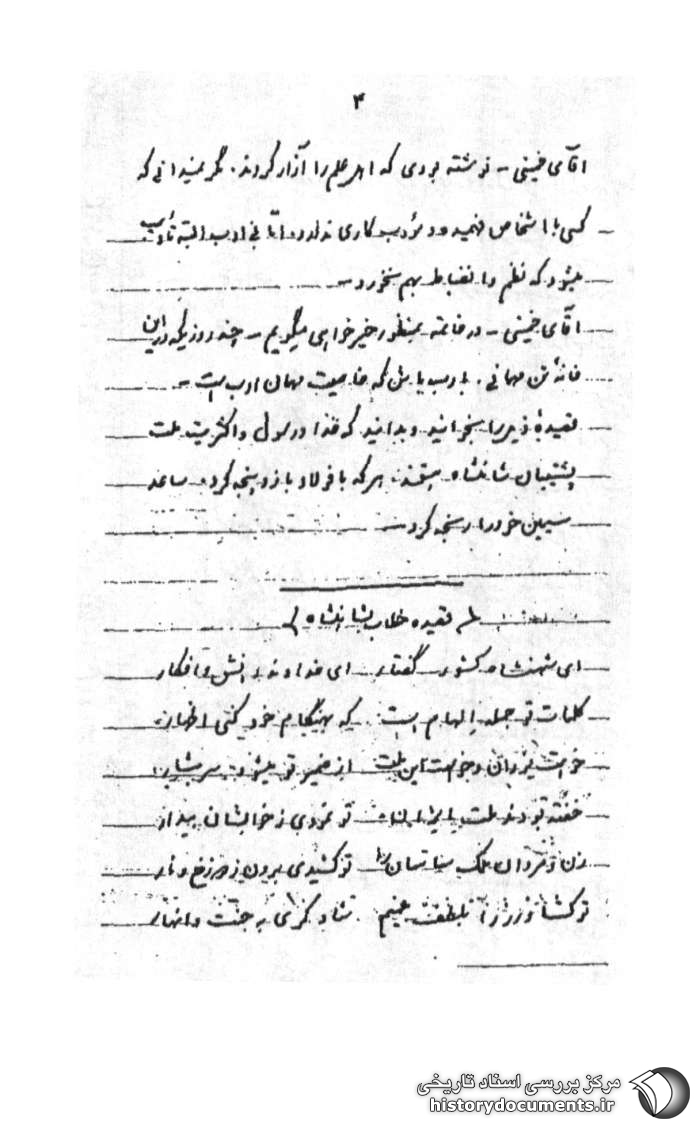 ۴
آقای خمینی - نوشته بودی که اهل علم را آزار کردند. مگر نمیدانی که
کسی با اشخاص فهمیده و مؤدب کاری ندارد اما بی ادب البته تأدیب
میشود که نظم و انضباط بهم نخورد -
آقای خمینی - در خاتمه بمنظور خیرخواهی میگویم - چند روزیکه در این
خانه تن مهمانی. با ادب باش که خاصیت مهمان ادب است -
قصیده زیر را بخوانید و بدانید که خدا و رسول و اکثریت ملت
پشتیبان شاهنشاه هستند. هر که با فولاد بازو پنجه کرد. ساعد
سیمین خود را رنجه کرد -
قصیده خطاب بشاهنشاه
ای شهنشاه کشور گفتار ای خداوند دانش و افکار
کلمات تو جمله الهام است که بهنگام خود کنی اظهار
خواست یزدان و خواست این ملت از ضمیر تو میشود سرشار
خفته بودند ملت ایران تو نمودی ز خوابشان بیدار
زن و مردان ملک ساسان را تو کشیدی برون ز دوزخ و نار
تو کشاورز را بلطف عمیم شاد کردی به جنت و انهار
مرکز بررسی اسناد تاریخی
historydocuments.ir